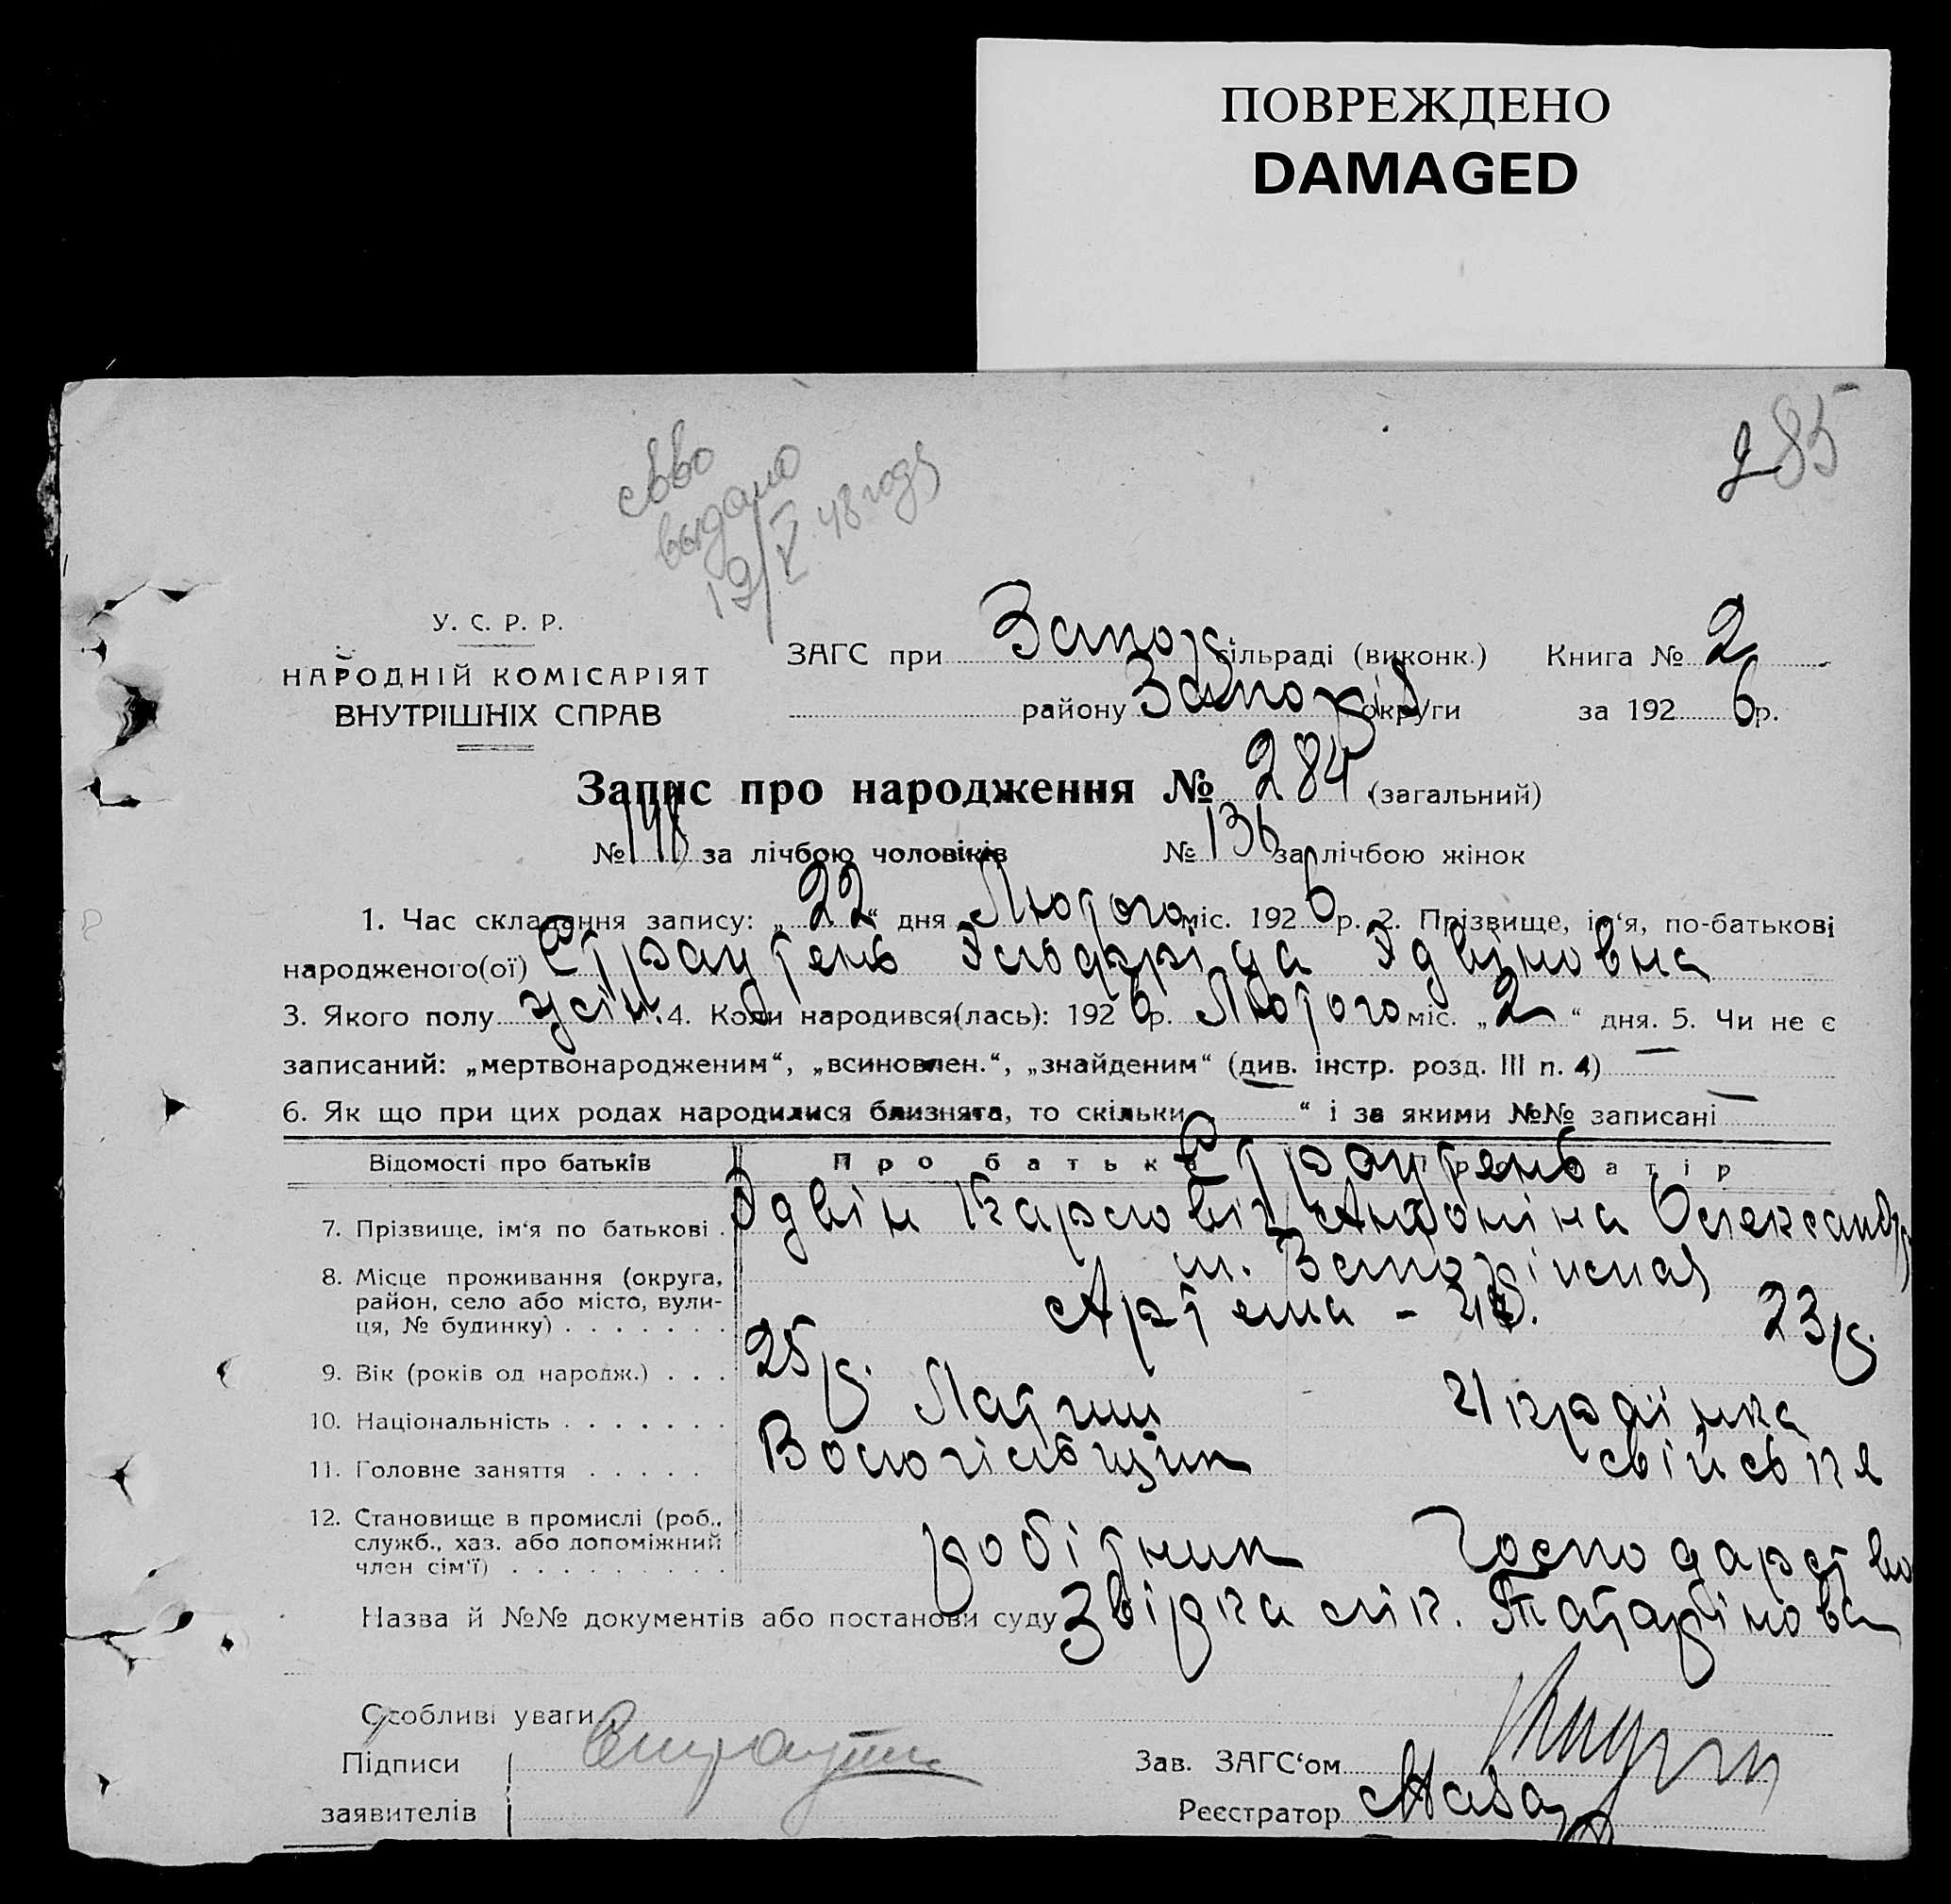 ПОВРЕЖДЕНО
DAMAGED
285
выдано
19/V 48 году
У. С. Р. Р.
НАРОДНІЙ КОМІСАРІЯТ
ВНУТРІШНІХ СПРАВ
ЗАГС при Запоріз сільраді (виконк.) Книга № 2
району Запоріз округи за 1926 р.
Запис про народження № 284 (загальний)
№ 148 за лічбою чоловіків № 136 за лічбою жінок
1. Час складання запису: „22“ дня Лютого міс. 1926 р. 2. Прізвище, ім‘я, по-батькові
народженого(ої) Страутень Ельфріда Эдвіновна
3. Якого полу жін. 4. Коли народився(лась): 1926 р. Лютого міс. „2“ дня. 5. Чи не є
записаний: „мертвонародженим“, „всиновлен.“, „знайденим“ (див. інстр. розд. III п. 4) —
6. Як що при цих родах народилися близнята, то скільки — “ і за якими №№ записані —
Відомості про батьків Про батька Про матір
Страутень
7. Прізвище, ім‘я по батькові . Эдвін Карлович Антоніна Олександр
8. Місце проживання (округа, район, село або місто, вулиця, № будинку) . . . . . . . м. Запоріжжя
Артема - 48.
9. Вік (років од народж.) . . . 25 р. 23 р.
10. Національність . . . . . . . Латиш Українка
11. Головне заняття . . . . . свійське
12. Становище в промислі (роб., служб., хаз. або допоміжний член сім‘ї) . . . . . . . . . робітник господарство
Назва й №№ документів або постанови суду Звірка лік. Татарінова
Особливі уваги
Підписи
заявителів
Зав. ЗАГС‘ом
Реєстратор